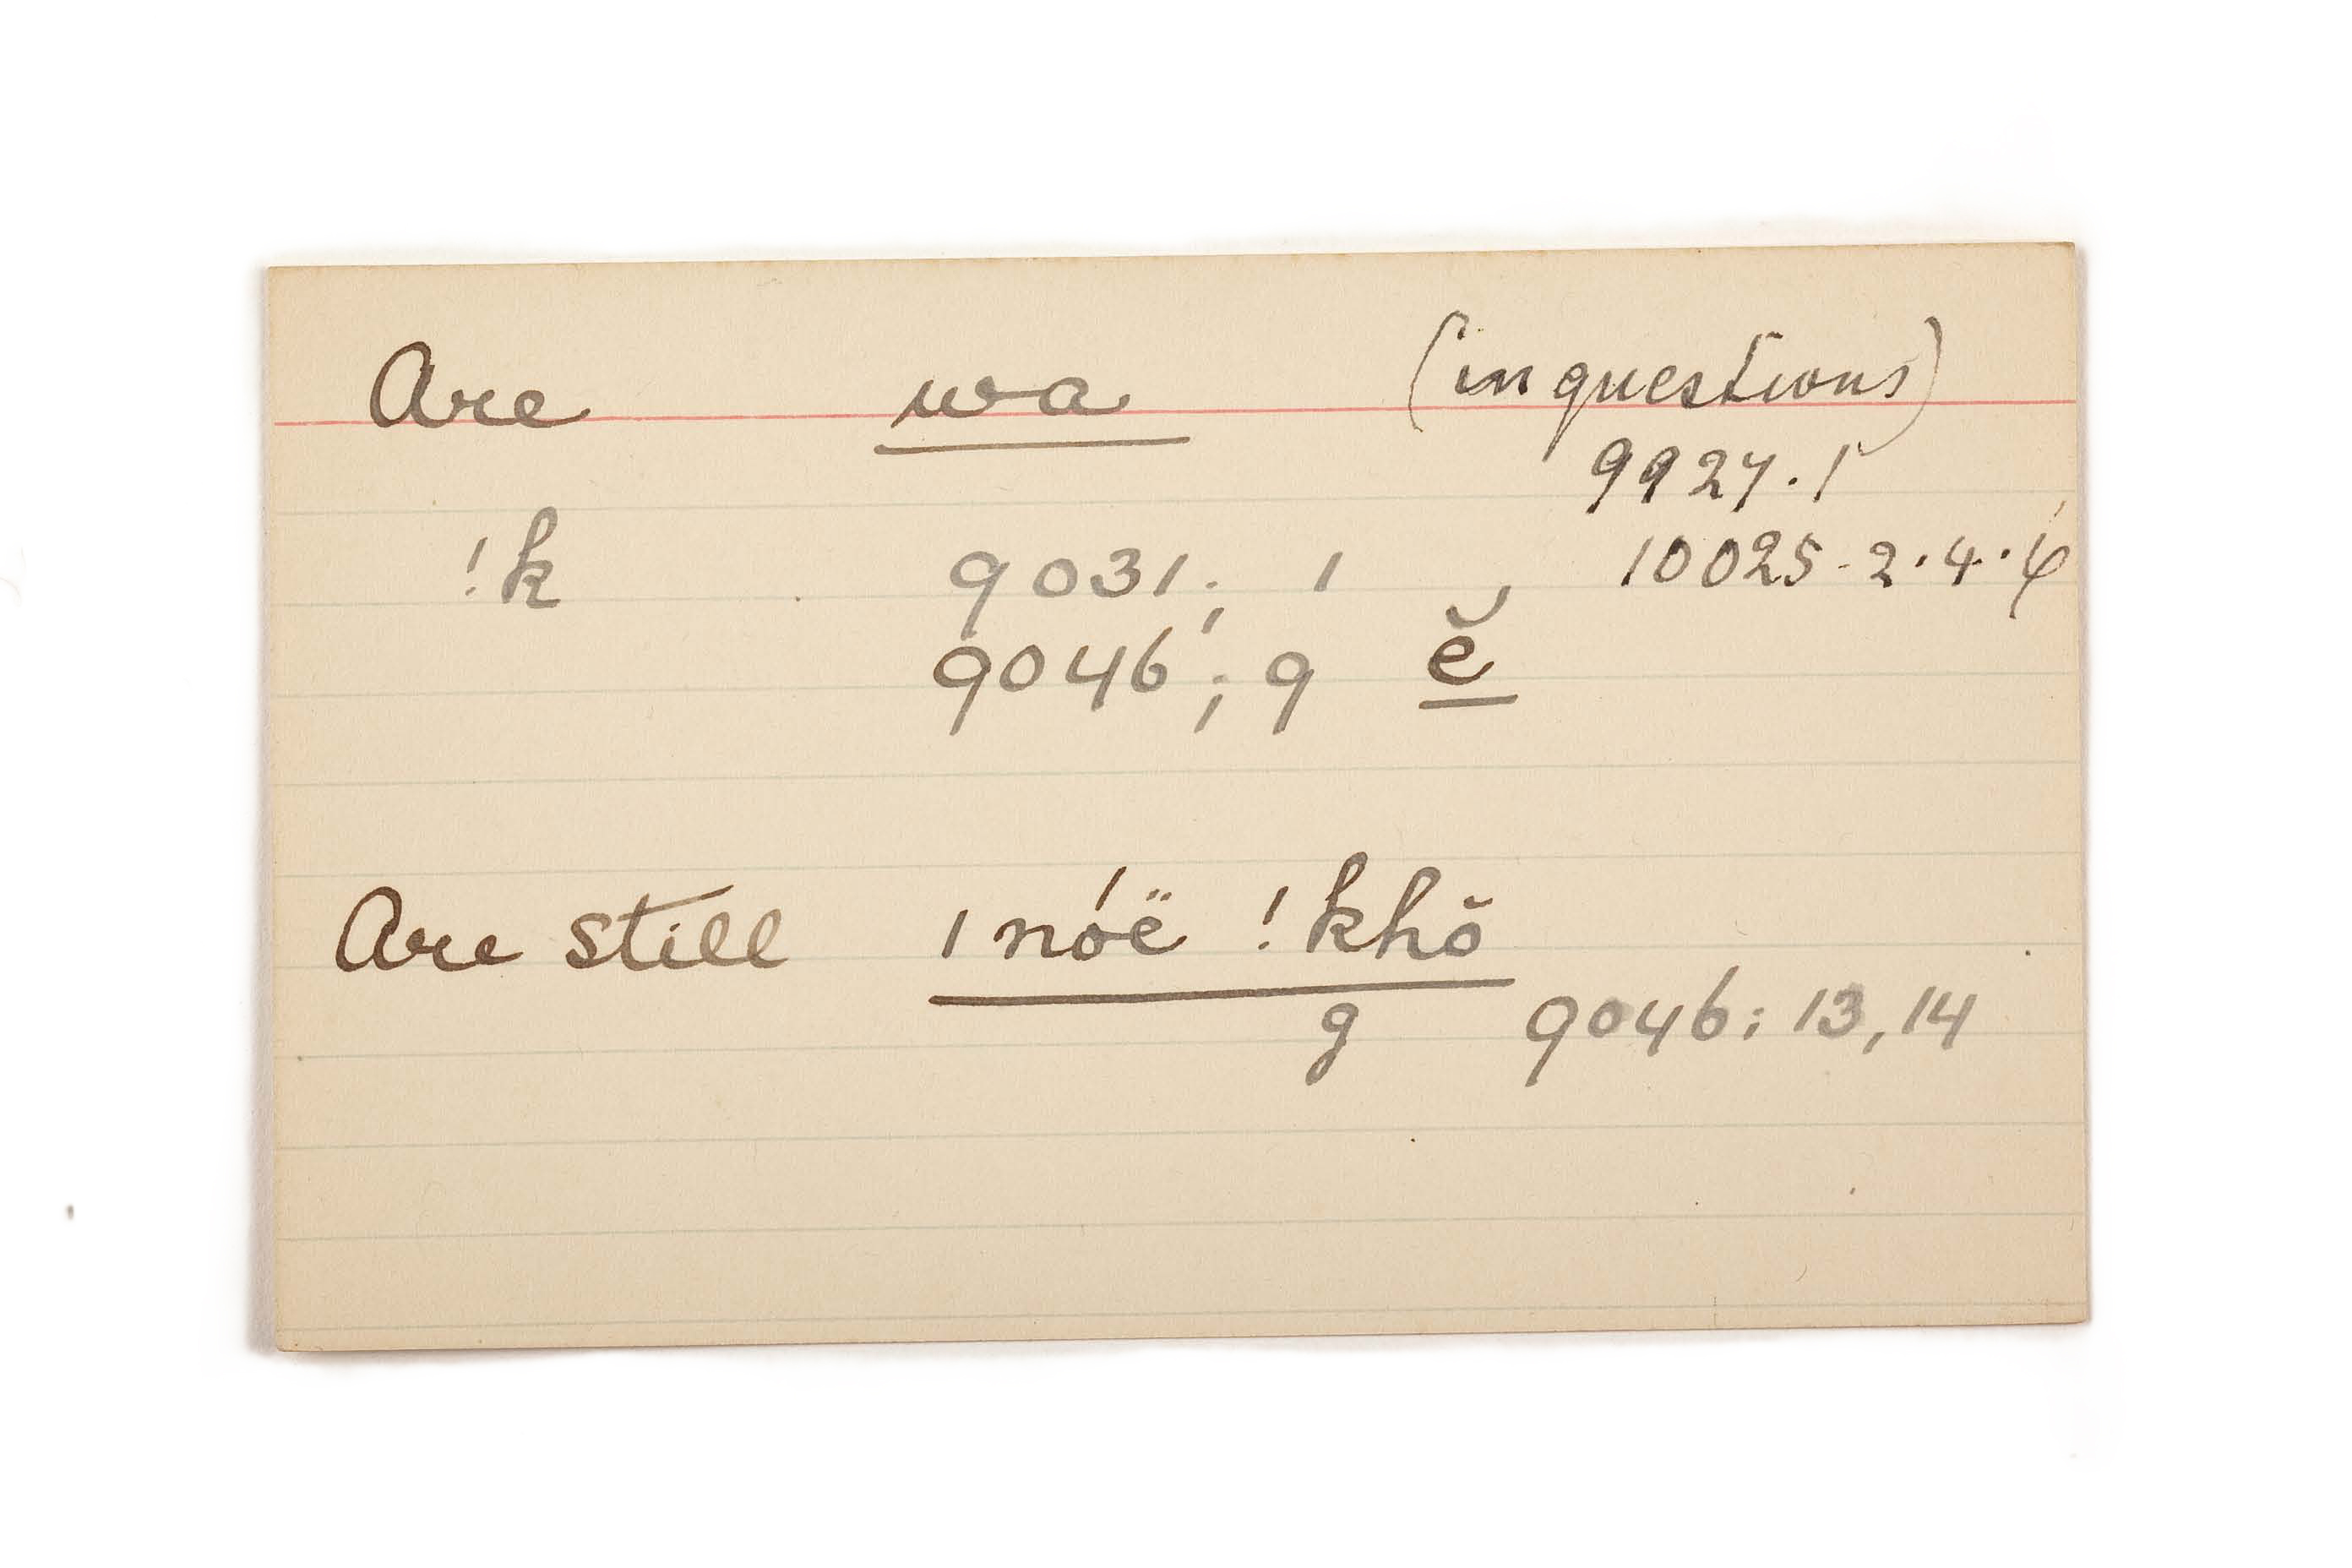 Are wa (in questions)
9927.1
!k 9031; 1 10025-2.4.6
9046; 9 ĕ
Are still ı nóë !khŏ
g 9046; 13, 14